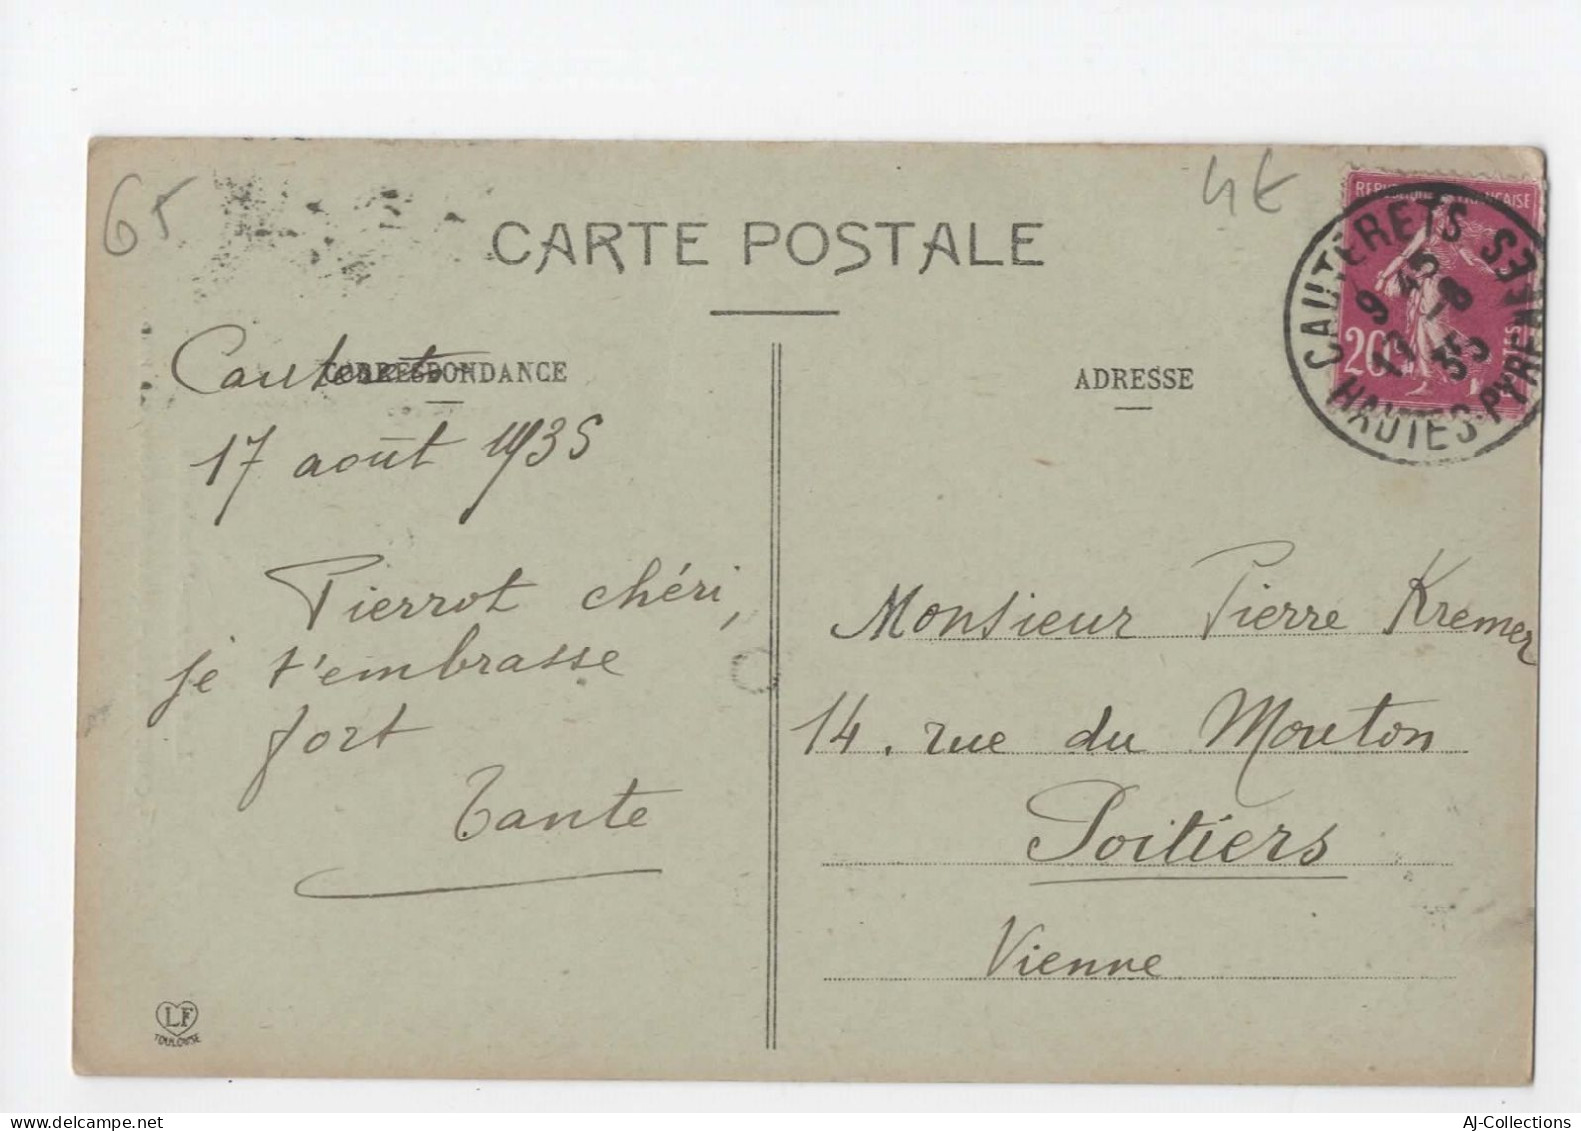 65
4€
CARTE POSTALE
REPUBLIQUE FRANÇAISE
20
CAUTERETS
9 45
17 -8
35
HAUTES-PYRENEES
CORRESPONDANCE
ADRESSE
Cauterets
17 août 1935
Pierrot chéri,
je t'embrasse
fort
Tante
Monsieur Pierre Kremer
14. rue du Mouton
Poitiers
Vienne
LF
TOULOUSE
AJ-Collections